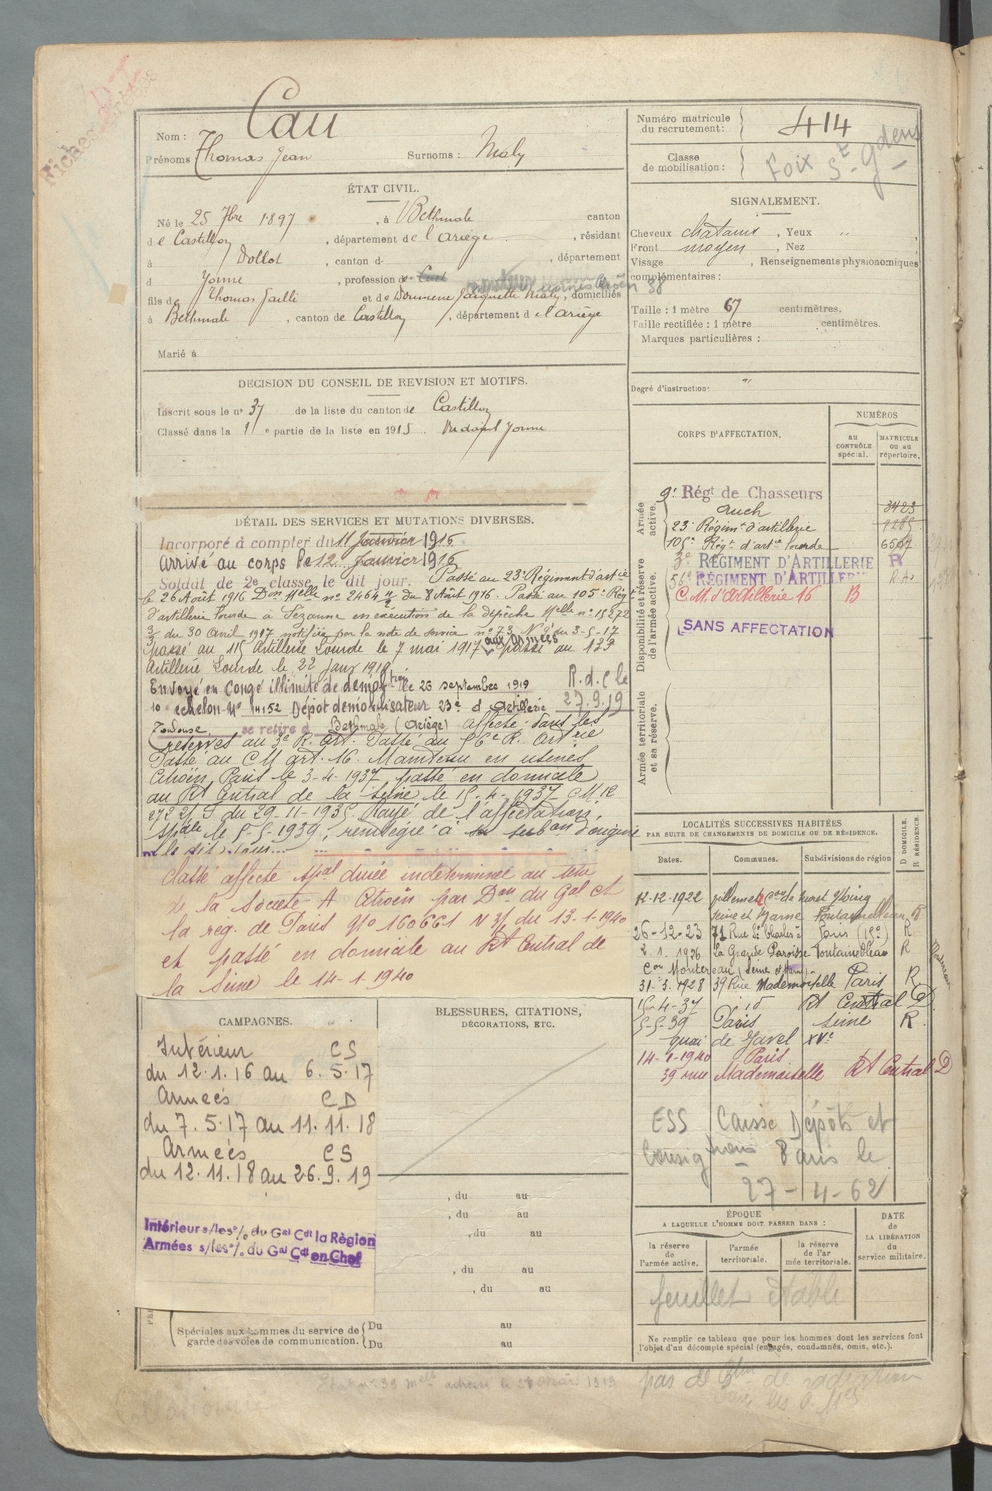 Nom : Cau
Prénoms Thomas Jean Surnoms : Maly
ÉTAT CIVIL.
Né le 25 7bre 1897, à Bethmale canton
de Castillon, département de l'Ariège, résidant
à Dollot, canton d, département
d Yonne, profession de
fils de Thomas Jaillé et de Domenc Jacquette Maly, domiciliés
à Bethmale, canton de Castillon, département de l'Ariège
Marié à
DÉCISION DU CONSEIL DE REVISION ET MOTIFS.
Inscrit sous le n° 37 de la liste du canton de Castillon
Classé dans la 1e partie de la liste en 1915. Yonne
DÉTAIL DES SERVICES ET MUTATIONS DIVERSES.
Incorporé à compter du 11 Janvier 1916
arrivé au corps le 12 Janvier 1916
Soldat de 2e classe le dit jour. Passé au 23e Régiment d'artie
le 26 Août 1916 Don Melle n° 2464 du 8 Août 1916. Passé au 105e Régt
d'artillerie lourde à Sézanne en exécution de la dépêche Melle n° 15272
3/3 du 30 Avril 1917 notifiée par la note de service n° 23 du 3-5-17
passé au 115 Artillerie Lourde le 7 mai 1917 aux armées passé au 133
Artillerie Lourde le 22 Janv 1919
Envoyé en congé illimité de démobtion le 26 septembre 1919 R.d.c le
10e échelon N° 14152 Dépôt démobilisateur 23e d'Artillerie 27.9.19
Toulouse se retire à Bethmale (Ariège) affecté dans les
réserves au 3e R. Art. Passé au 56e R. Artrie
Passé au C M art. 16. Maintenu en usines
Citroën, Paris le 3-4-1937 passé en domicile
au Rt Central de la Seine le 15-4-1937 C.M. 12
272 2/ S du 29-11-1935 Rayé de l'affectation
spale le 5-5-1939, réintégré à son subon d'origine
le dit jour
Classé affecté spal durée indéterminée au titre
de la Société A Citroën par Don du Gal Ct
la rég. de Paris N° 160661 du 13-1-1940
et passé en domicile au Rt Central de
la Seine le 14-1-1940
CAMPAGNES.
Intérieur CS
du 12.1.16 au 6.5.17
Armées CD
du 7.5.17 au 11.11.18
Armées CS
du 12.11.18 au 26.9.19
Intérieur s/les o/. du Gal Cdt la Région
Armées s/les o/. du Gal Cdt en Chef
BLESSURES, CITATIONS,
DÉCORATIONS, ETC.
, du au
, du au
, du au
, du au
, du au
Spéciales aux hommes du service de garde des voies de communication. { Du au
Du au
Numéro matricule du recrutement : 414
Classe de mobilisation : Foix St Gdens
SIGNALEMENT.
Cheveux chatains, Yeux "
Front moyen, Nez
Visage, Renseignements physionomiques
complémentaires :
Taille : 1 mètre 67 centimètres.
Taille rectifiée : 1 mètre centimètres.
Marques particulières :
Degré d'instruction : "
CORPS D'AFFECTATION.
NUMÉROS
au CONTRÔLE spécial.
MATRICULE ou au répertoire.
Armée active.
9e Régt de Chasseurs
Auch 3423
23e Régimt d'artillerie 7285
105e Régt d'artie lourde 6507
Disponibilité et réserve de l'armée active.
3e RÉGIMENT D'ARTILLERIE R
56e RÉGIMENT D'ARTILLERIE
C.M. d'artillerie 16 B
SANS AFFECTATION
Armée territoriale et sa réserve.
LOCALITÉS SUCCESSIVES HABITÉES
PAR SUITE DE CHANGEMENTS DE DOMICILE OU DE RÉSIDENCE.
Dates. Communes. Subdivisions de région D DOMICILE. R RÉSIDENCE.
12-12-1922
Seine et Marne Fontainebleau
26-12-23 71 Rue St Charles à Paris (15e) R
2.1.1926 La Grande Paroisse Fontainebleau R
Con Montereau (Seine et Marne)
31-3-1928 39 Rue Mademoiselle Paris R
15-4-37 id Rt Central D
5-5-39 Paris Seine R
quai de Javel XVe
14-1-1940 Paris
39 rue Mademoiselle Rt Central D
ESS Caisse Dépôts et
Consignations Paris le
27-4-62
ÉPOQUE
A LAQUELLE L'HOMME DOIT PASSER DANS :
la réserve de l'armée active.
l'armée territoriale.
la réserve de l'armée territoriale.
DATE de LA LIBÉRATION du service militaire.
feuillet
Ne remplir ce tableau que pour les hommes dont les services font
l'objet d'un décompte spécial (engagés, condamnés, omis, etc.).
pas de de radiation